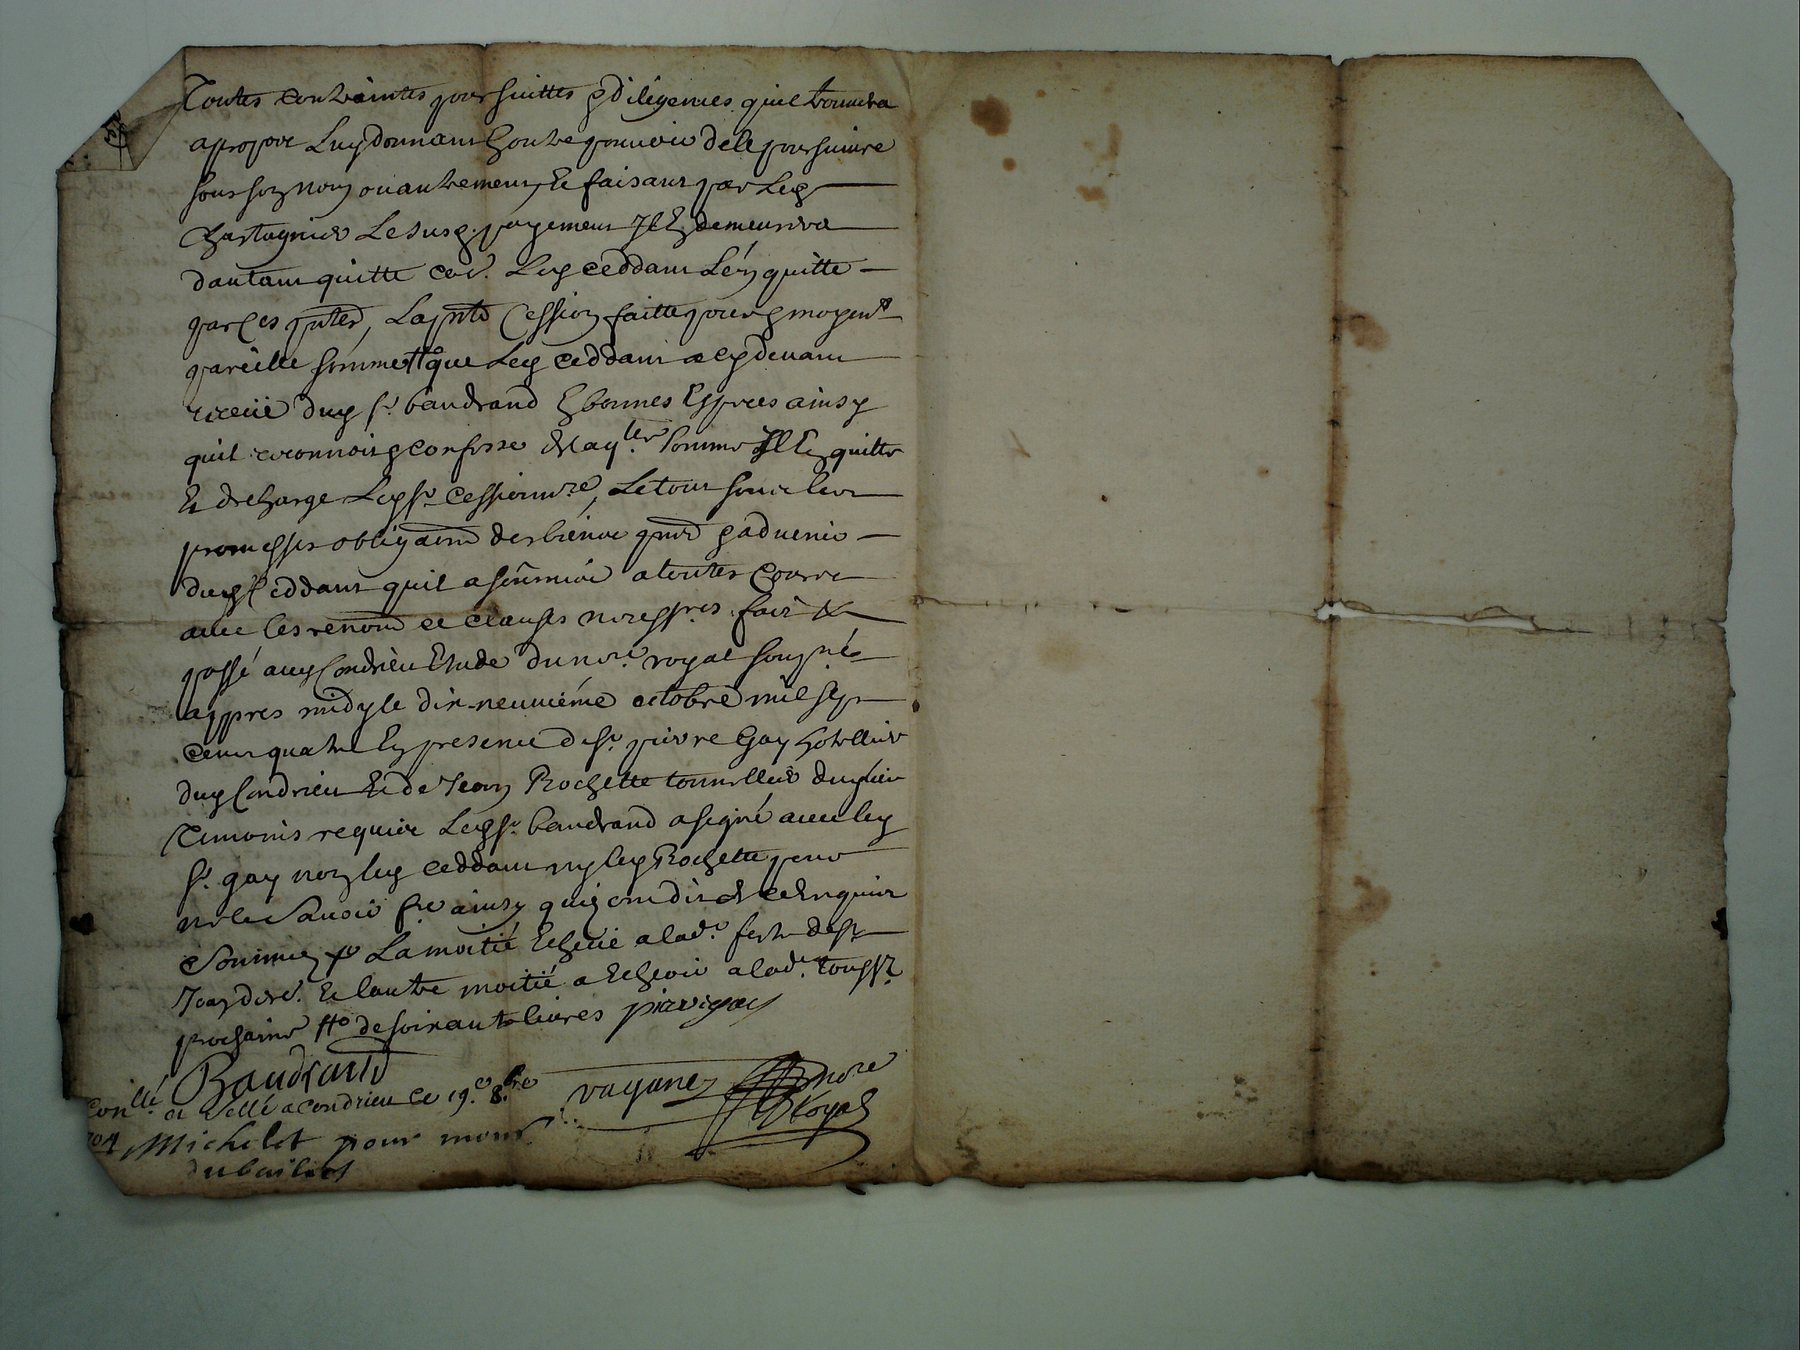 Toutes contraintes poursuittes & diligences quil trouvera
apropos Luy donnant Contre pouvoir de le poursuivre
sous son nom ou autrement, Et faisant par Led
Chastagnier Le susd. payement Il En demeurera
dautant quitte Led. ceddant Len quitte
par Ces pntes, La pnte Cession faitte pour & moyent
pareille somme que Led ceddant a cy devant
receüe dud sr. baudrand En bonnes Especes ainsy
quil reconnoit & confesse de laqlle. somme Il En quitte
Et descharge Led sr. cessionnre, Le tout sous leur
promesses obligaons des biens pnts & advenir
dud Ceddant quil a soumis a toutes Cours
avec les renons et clauses necessres. fait &
passé aud Condrieu Etude du nore. royal soussné
appres midy le dix-neuvieme octobre mil sept
cent quatre En presence de sr. pierre Gay hotellier
dud Condrieu Et de Jean Rochette tonnellier dud lieu
Temoins requis Led sr. baudrand a signé avec led
sr. gay non led ceddant ny led Rochette pour
ne le Savoir fre ainsy quiz ont dit de ce Enquis
Et Sommez La moitié Echeüe a lad. feste de st
Jean dere. Et lautre moitié a Echeoir a lad. touss
prochaine de soixante livres pierre gay
Baudrand
Conllé. et scellé a condrieu ce 19e 8bre
vaganez nore
Royal
704 Michelet pour monsr
dubuisson